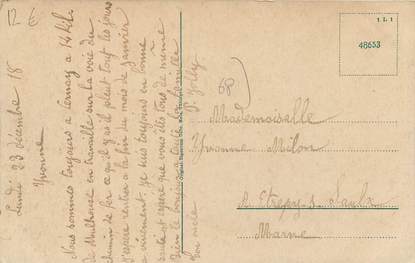 12 €
Lundi 23 décembre 18
Yvonne
Nous sommes toujours a Cernay a 14 kil.
de Mulhouse on travaille sur la voie du
chemin de fer a qu'il y as il pleut tout les jours
j'espère rentrer a la fin du mois de janvier
vivement. je suis toujours en bonne
santé et espère que vous êtes tous de même
bien le bonjour a toute la famille
ton oncle
P. Jolly
68
1 L 1
48653
Mademoiselle
Yvonne Milon
a Etrepy-s-Saulx
Marne